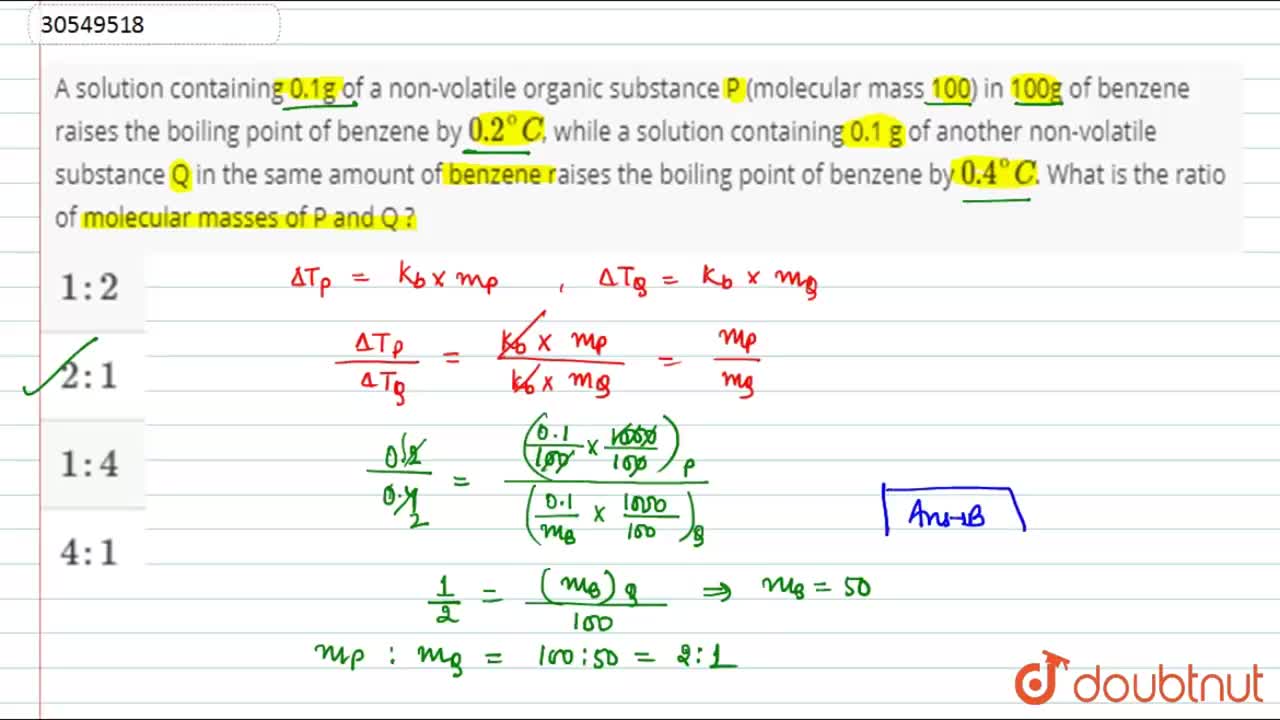 30549518
A solution containing 0.1g of a non-volatile organic substance P (molecular mass 100) in 100g of benzene
raises the boiling point of benzene by 0.2°C, while a solution containing 0.1 g of another non-volatile
substance Q in the same amount of benzene raises the boiling point of benzene by 0.4°C. What is the ratio
of molecular masses of P and Q ?
1:2
2:1
1:4
4:1
ΔTp = kb × mp , ΔTQ = kb × mQ
ΔTp / ΔTQ = kb × mp / kb × mQ = mp / mQ
0.2 / 0.4 2 = (0.1/100 × 1000/100)p / (0.1/mB × 1000/100)Q
1/2 = (mB)Q / 100 ⇒ mB = 50
mp : mQ = 100:50 = 2:1
Ans→B
doubtnut